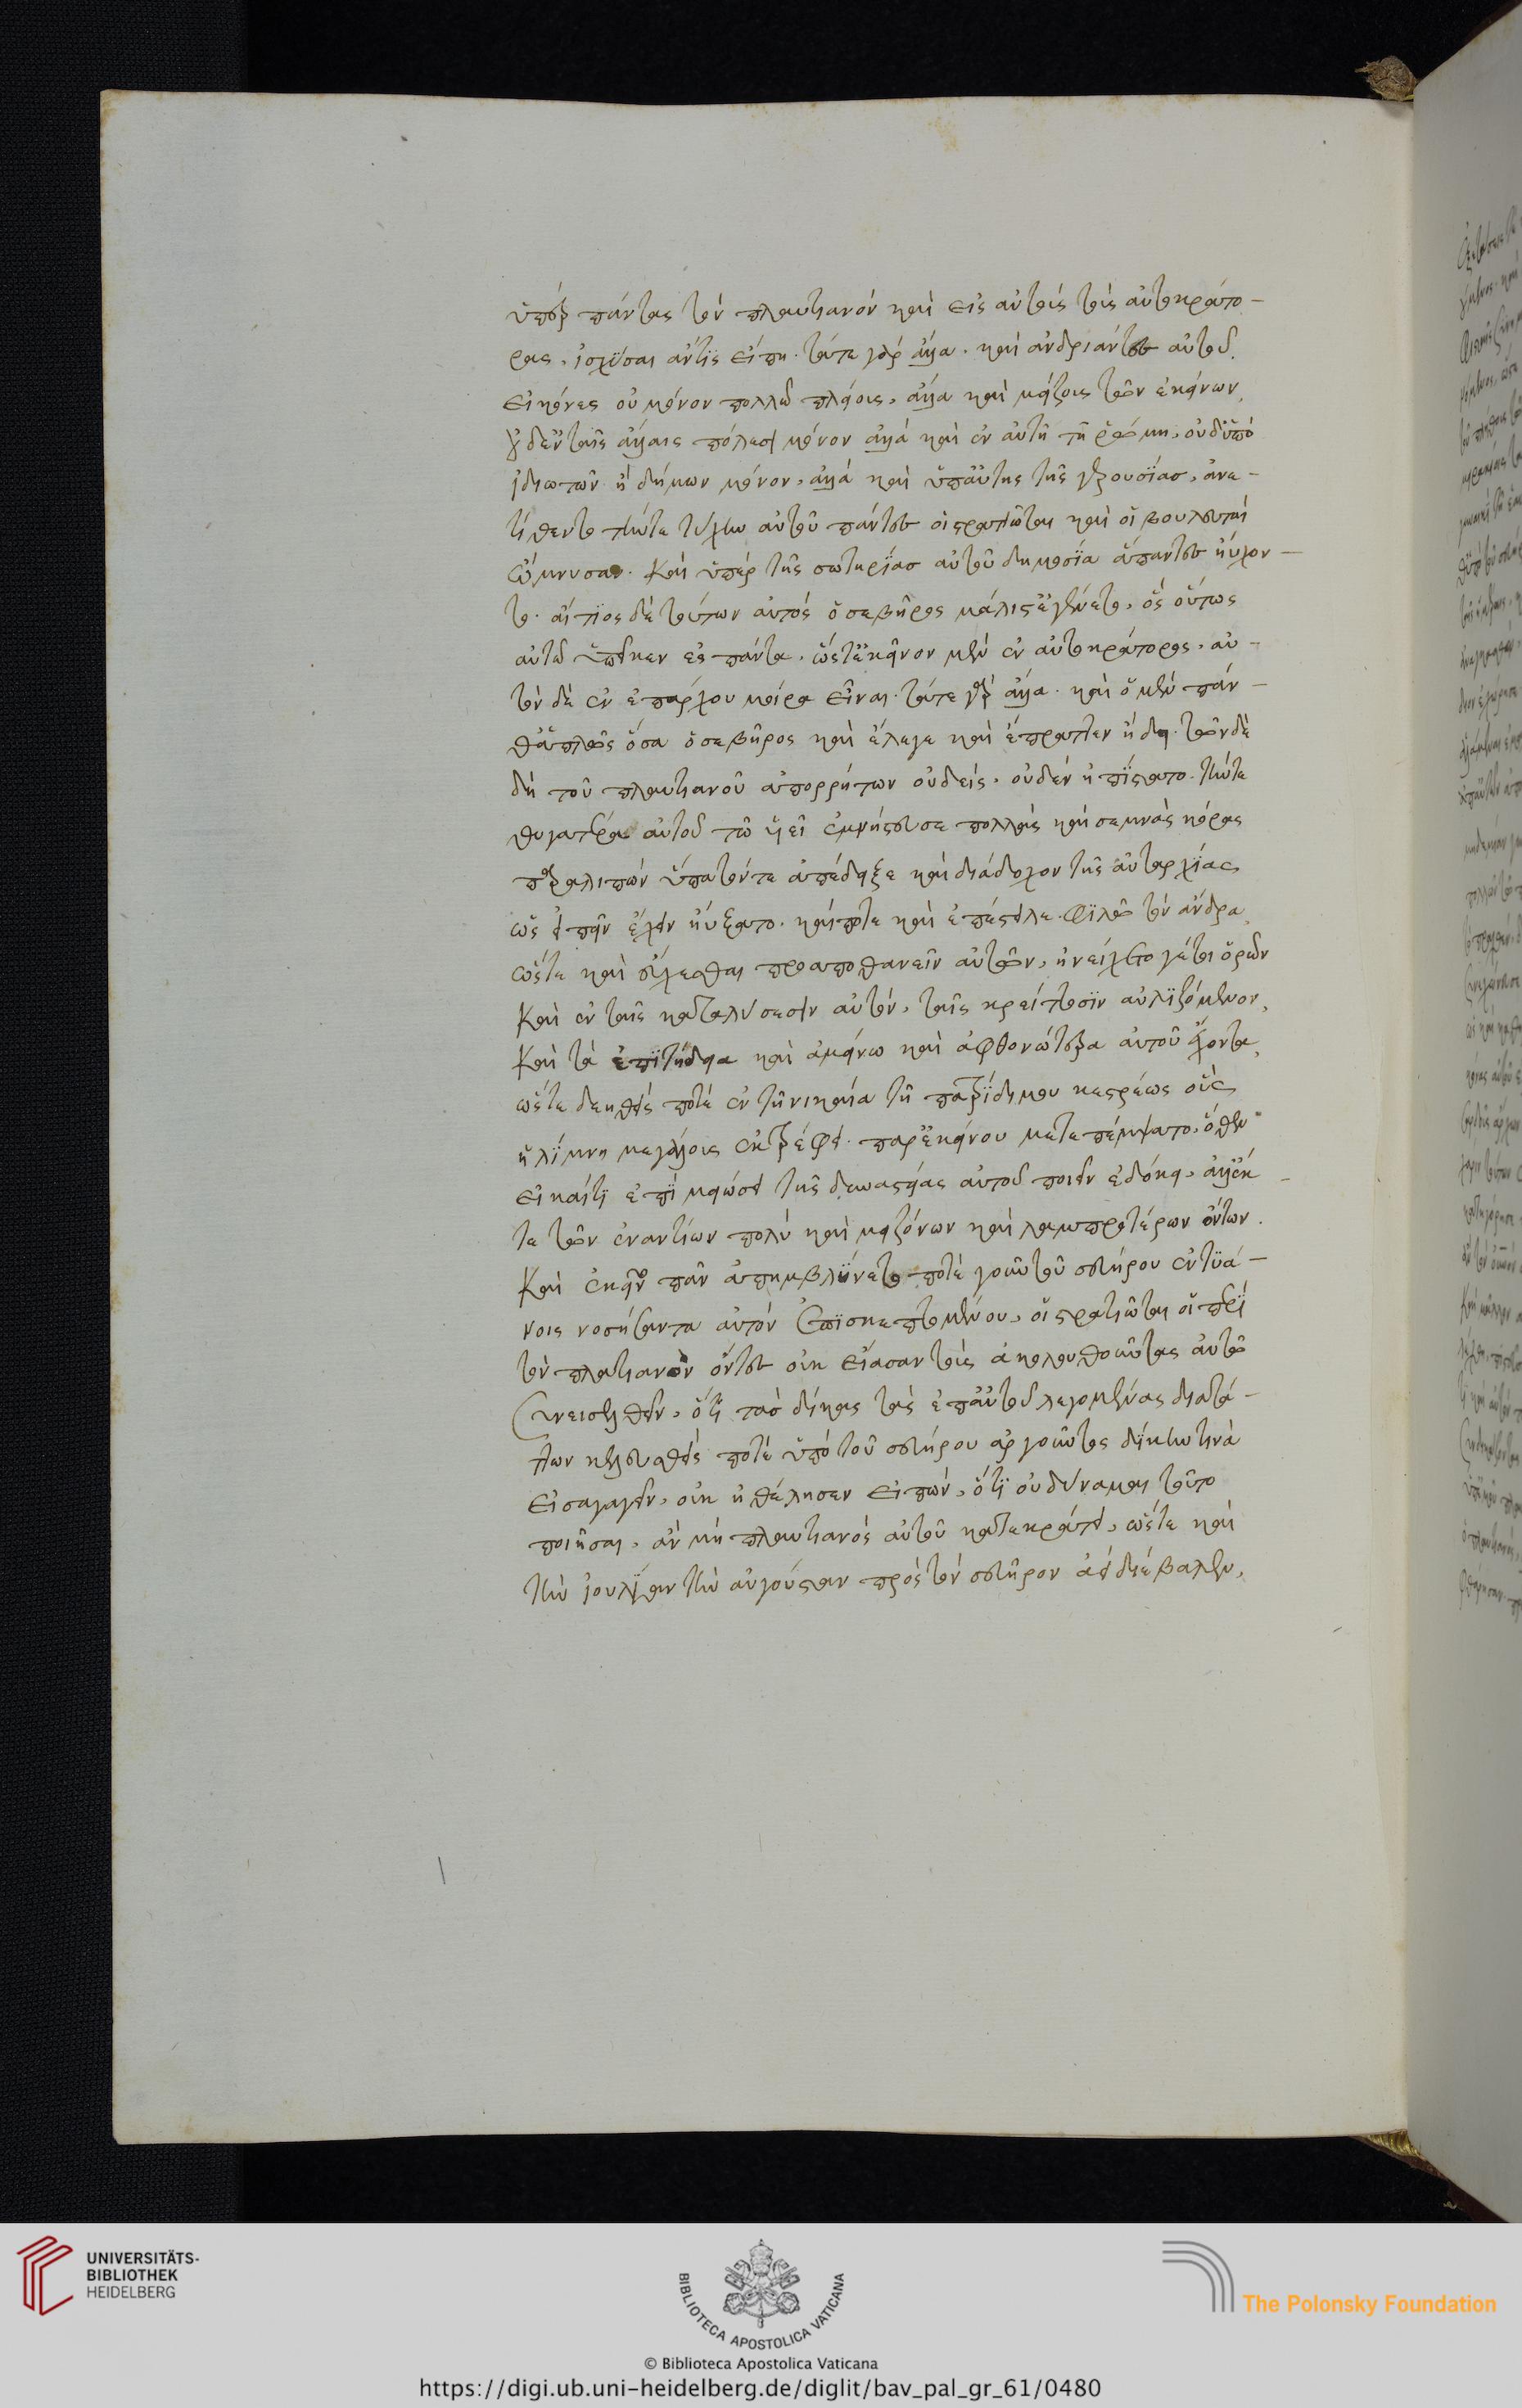 ὑπὲρ πάντας τὸν πλαυτιανὸν καὶ εἰς αὐτοὺς τοὺς αὐτοκράτο-
ρας. ἰσχῦσαι ἄντις εἴποι. τάτε γὰρ ἄλλα. καὶ ἀνδριάντες αὐτοῦ
εἰκόνες οὐ μόνον πολλῷ πλείους, ἀλλὰ καὶ μείζους τῶν ἐκείνων,
οὐδ' ἐν ταῖς ἄλλαις πόλεσι μόνον ἀλλὰ καὶ ἐν αὐτῇ τῇ ῥώμῃ. οὐδ' ὑπὸ
ἰδιωτῶν ἢ δήμων μόνον, ἀλλὰ καὶ ὑπ' αὐτῆς τῆς γερουσίας. ἀνε-
τίθεντο τήντε τύχην αὐτοῦ πάντες οἱ στρατιῶται καὶ οἱ βουλευταὶ
ὤμνυσαν. καὶ ὑπὲρ τῆς σωτηρίας αὐτοῦ δημοσίᾳ ἅπαντες ηὔχον-
το. αἴτιος δὲ τούτων αὐτὸς ὁ σεβῆρος μάλιστ' ἐγένετο, ὃς οὕτως
αὐτῷ ὑπεῖκεν ἐς πάντα. ὥστ' ἐκεῖνον μὲν ἐν αὐτοκράτορος. αὐ-
τὸν δὲ ἐν ἐπάρχου μοίρᾳ εἶναι. τάτε γὰρ ἄλλα. καὶ ὁ μὲν πάν-
θ' ἁπλῶς ὅσα ὁ σεβῆρος καὶ ἔλεγε καὶ ἔπραττεν ᾔδει. τῶν δὲ
δὴ τοῦ πλαυτιανοῦ ἀπορρήτων οὐδεὶς. οὐδὲν ἠπίστατο. τήντε
θυγατέρα αὐτοῦ τῷ υἱεῖ ἐμνήστευσε πολλὰς καὶ σεμνὰς κόρας
παραλιπὼν ὕπατόντε ἀπέδειξε καὶ διάδοχον τῆς αὐταρχίας
ὡς εἰπεῖν ἔχειν ηὔξατο. καί ποτε καὶ ἐπέστειλε. φιλῶ τὸν ἄνδρα,
ὥστε καὶ εὔχεσθαι προαποθανεῖν αὐτῶν. ἠνείχετο γέτοι ὁρῶν
καὶ ἐν ταῖς καταλύσεσιν αὐτὸν. ταῖς κρείττοσιν αὐλιζόμενον,
καὶ τὰ ἐπιτήδεια καὶ ἀμείνω καὶ ἀφθονώτερα αὐτοῦ ἔχοντα,
ὥστε δεηθείς ποτε ἐν τῇ νικαίᾳ τῇ πατρίδι μου κεστρέως οὓς
ἡ λίμνη μεγάλους ἐκτρέφει. παρ' ἐκείνου μετεπέμψατο, ὅθεν
εἰ καί τι ἐπὶ μειώσει τῆς δυναστείας αὐτοῦ ποιεῖν ἐδόκει. ἀλλ' ἔκ
τε τῶν ἐναντίων πολὺ καὶ μειζόνων καὶ λαμπροτέρων ὄντων.
καὶ ἐκεῖνο πᾶν ἀπημβλύνετο ποτὲ γοῦν τοῦ σευήρου ἐν τυά-
νοις νοσήσαντα αὐτὸν ἐπισκεπτομένου. οἱ στρατιῶται οἱ περὶ
τὸν πλατιανὸν ὄντες οὐκ εἴασαν τοὺς ἀκολουθοῦντας αὐτῷ
συνεισελθεῖν. ὅτι τὰς δίκας τὰς ἐπ' αὐτοῦ λεγομένας διατά-
ττων κελευσθείς ποτε ὑπὸ τοῦ σευήρου ἀργοῦντος δίκην τινὰ
εἰσαγαγεῖν. οὐκ ἠθέλησεν εἰπών. ὅτι οὐ δύναμαι τοῦτο
ποιῆσαι. ἂν μὴ πλαυτιανὸς αὐτοῦ κατεκράτει, ὥστε καὶ
τὴν ἰουλίαν τὴν αὐγούσταν πρὸς τὸν σευῆρον ἀεὶ διέβαλλεν.
UNIVERSITÄTS-
BIBLIOTHEK
HEIDELBERG
BIBLIOTECA APOSTOLICA VATICANA
© Biblioteca Apostolica Vaticana
The Polonsky Foundation
https://digi.ub.uni-heidelberg.de/diglit/bav_pal_gr_61/0480